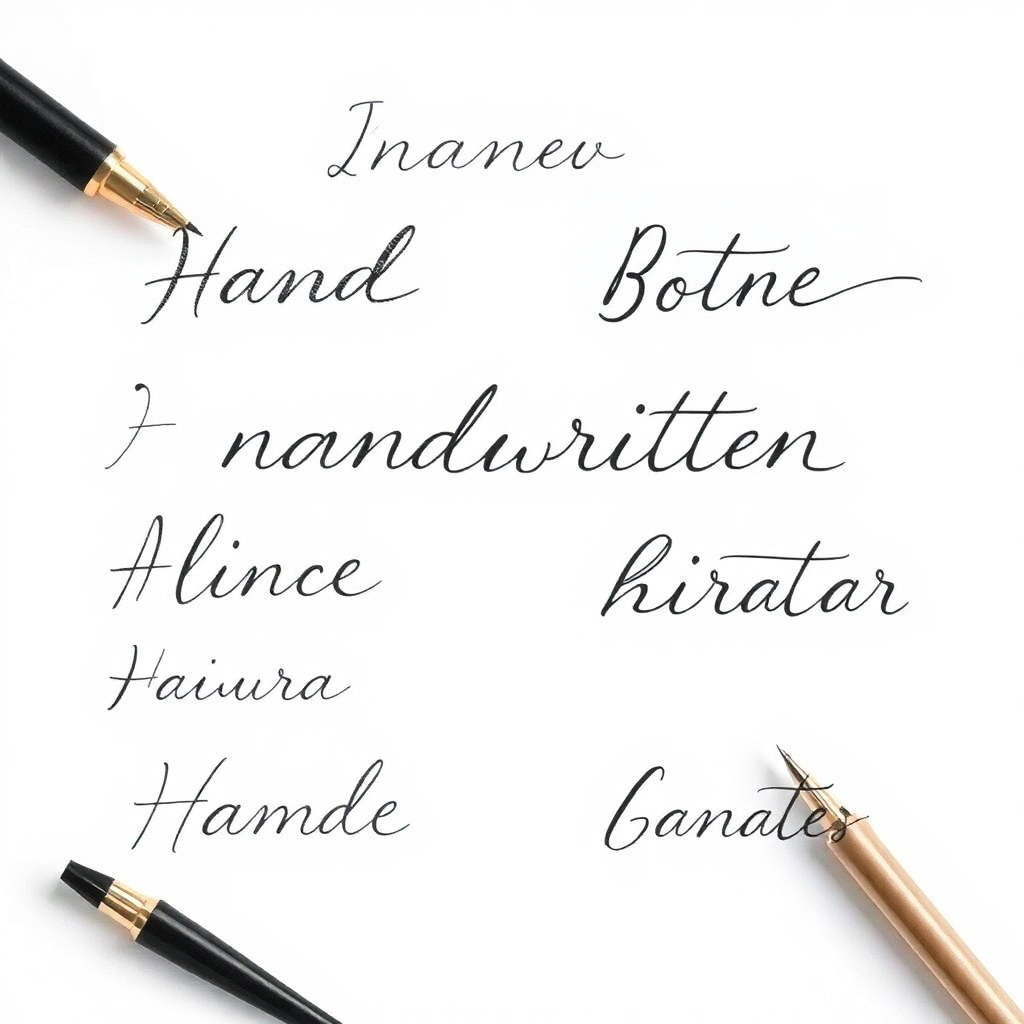 Inanev
Hand Botne
nandwritten
Alince hiratar
Haiuura
Hamde Ganates